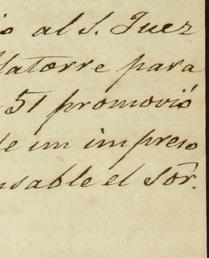 io al S. Juez
latorre para
51 promovió
de un impreso
nsable el Sōr.